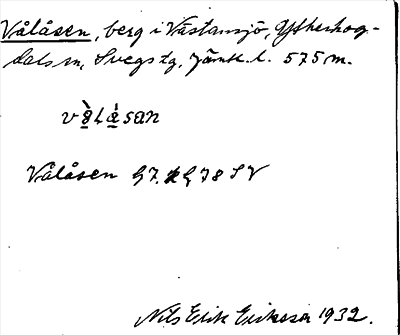 Vålåsen, berg i Västansjö, Ytterhog-
dals sn, Svegs tg, Jämtl. l. 575 m.
Vålåsen G7. G 78 SV
Nils Erik Eriksson 1932.